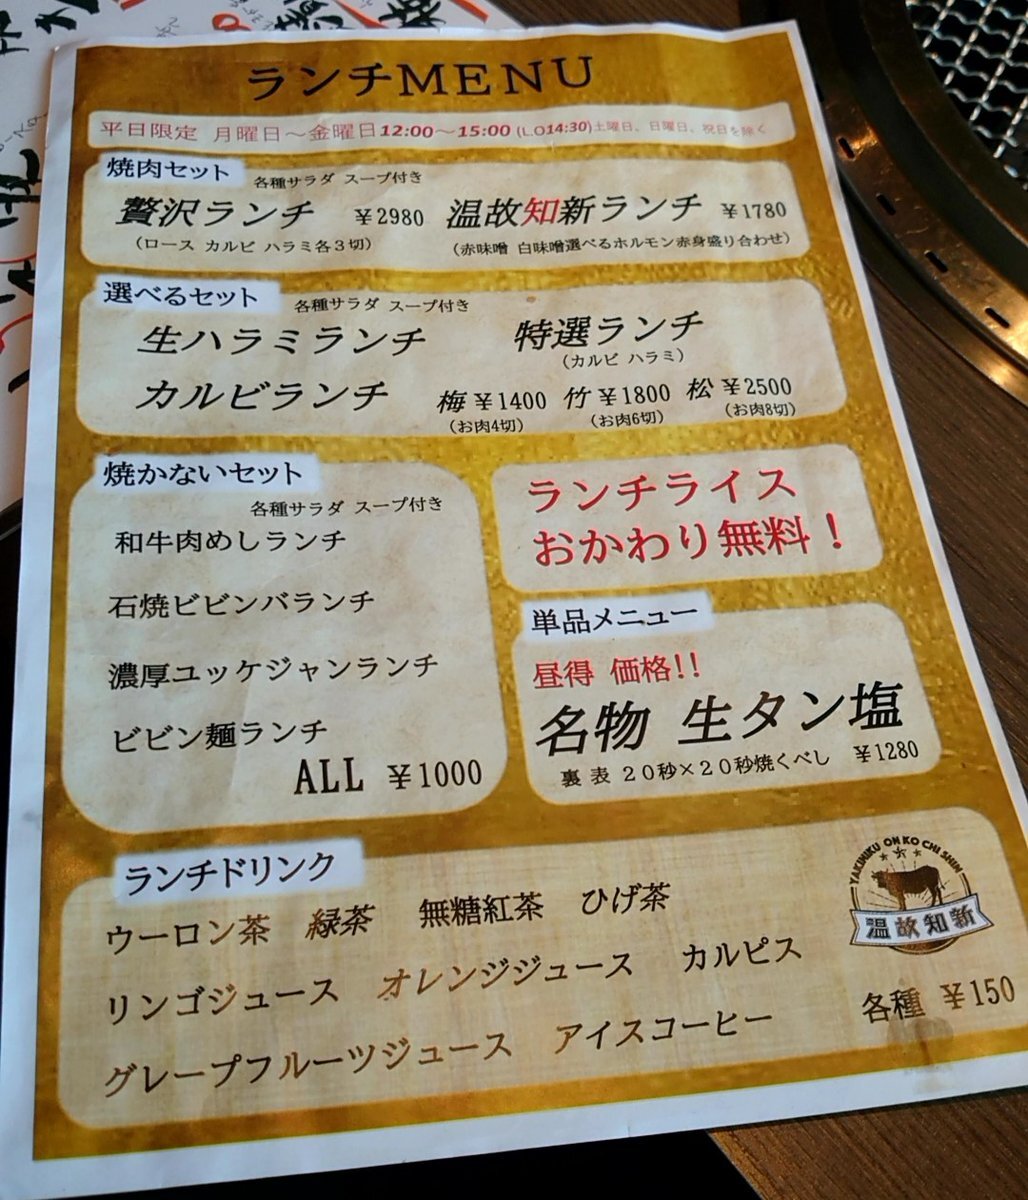 ランチMENU
平日限定 月曜日～金曜日12:00～15:00 (L.O14:30)土曜日、日曜日、祝日を除く
焼肉セット 各種サラダ スープ付き
贅沢ランチ ￥2980 温故知新ランチ ￥1780
（ロース カルビ ハラミ各３切） （赤味噌 白味噌選べるホルモン赤身盛り合わせ）
選べるセット 各種サラダ スープ付き
生ハラミランチ 特選ランチ
（カルビ ハラミ）
カルビランチ 梅 ￥1400 竹 ￥1800 松 ￥2500
（お肉4切） （お肉6切） （お肉8切）
焼かないセット
各種サラダ スープ付き
和牛肉めしランチ
石焼ビビンバランチ
濃厚ユッケジャンランチ
ビビン麺ランチ
ALL ￥1000
ランチライス
おかわり無料！
単品メニュー
昼得 価格!!
名物 生タン塩
裏 表 ２０秒×２０秒焼くべし ￥1280
ランチドリンク
ウーロン茶 緑茶 無糖紅茶 ひげ茶
リンゴジュース オレンジジュース カルピス
グレープフルーツジュース アイスコーヒー
YAKINIKU ON KO CHI SHIN
温故知新
各種 ￥150